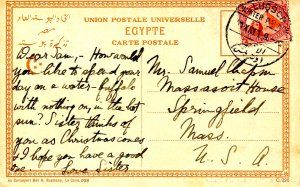 UNION POSTALE UNIVERSELLE
EGYPTE
CARTE POSTALE
Dear Sam, - How would
you like to spend your
day on a water-buffalo
with nothing on, in the hot
sun? Sister thinks of
you as Christmas comes
& I hope you have a good
one. Sister
Mr. Samuel
Massasoit House
Springfield
Mass.
U. S. A.